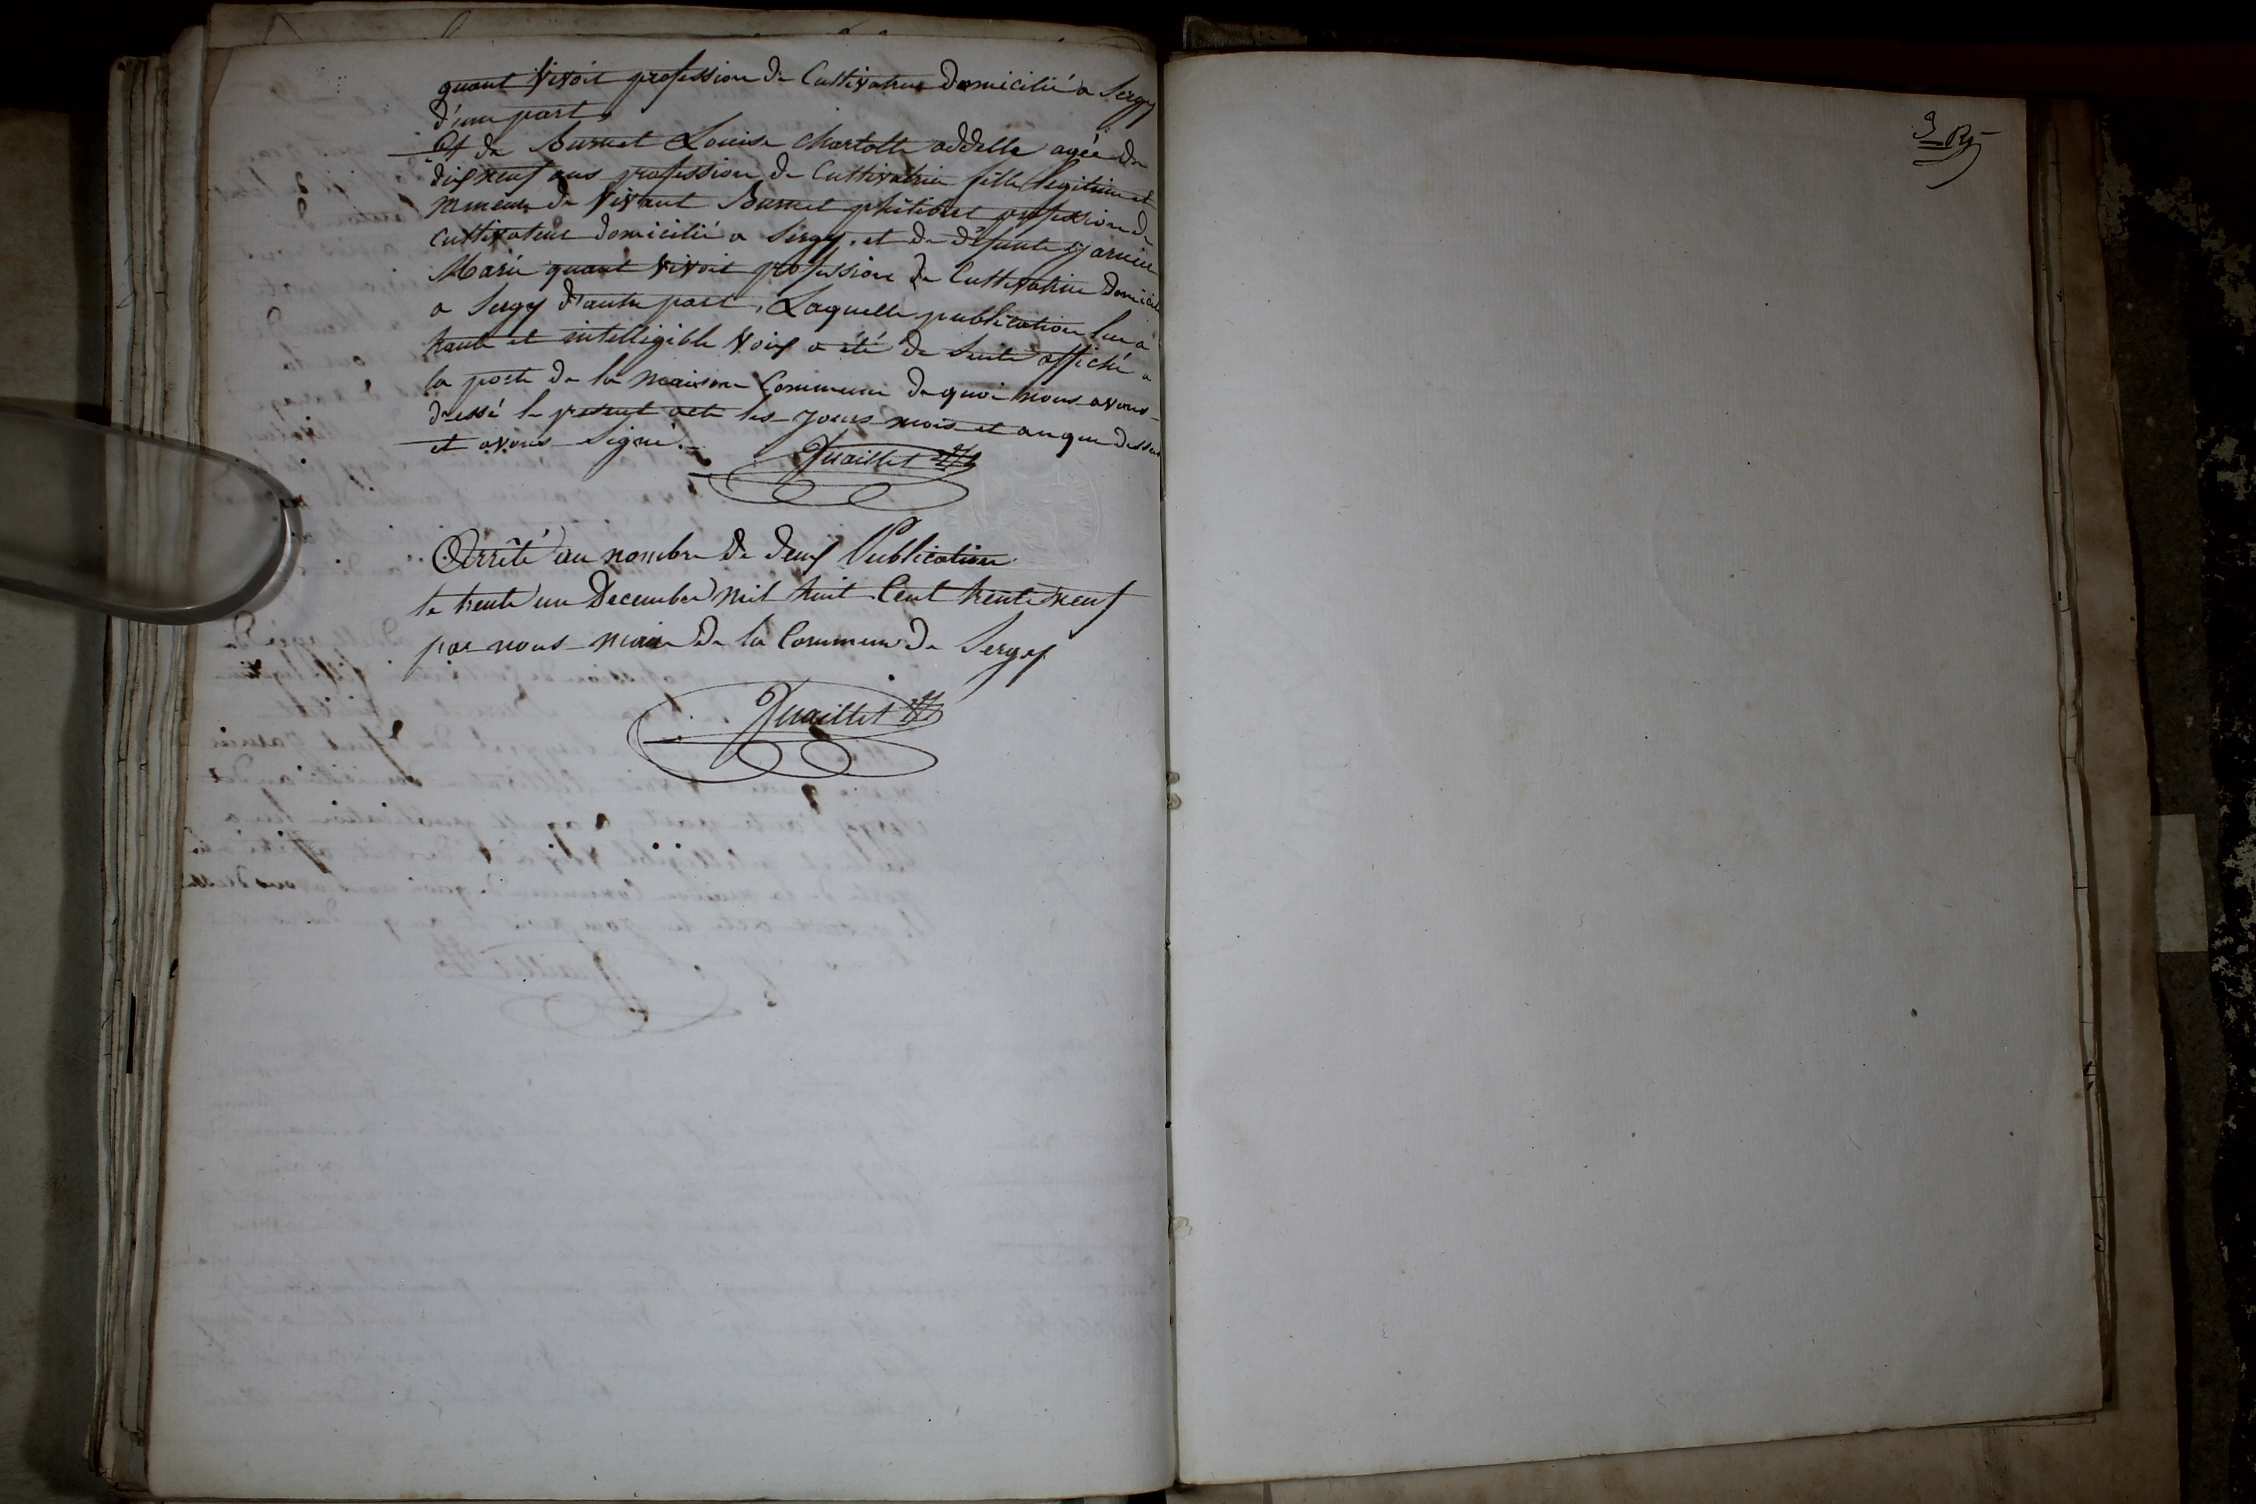 quant vivoit profession de Cultivatrice domicilié a Sergy
d'une part,
Et de Burnet Louise Charlotte addelle agée de
dixneuf ans profession de Cultivatrice fille legitime et
mineure de vivant Burnet philibert profession de
cultivateur domicilié a Sergy, et de défunte
Marie quant vivoit profession de Cultivatrice domicilié
a Sergy d'autre part, Laquelle publication lue a
haute et intelligible voix a été de suite affiché a
la porte de la maison Commune de quoi nous avons
dressé le present acte les jours mois et an que dessus
et avons signé.
Arrêté au nombre de deux Publication
le trente un Decembre mil huit Cent trente neuf
par nous maire de la Commune de Sergy